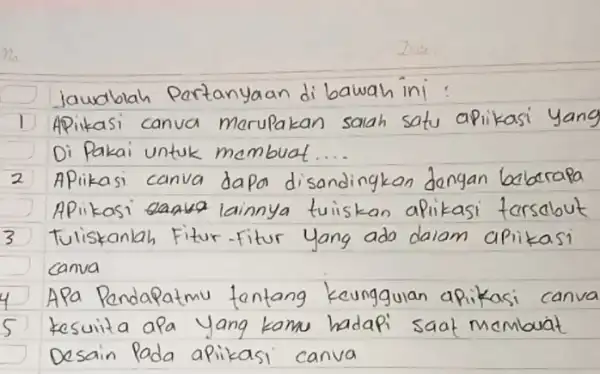 No
Date
Jawablah Pertanyaan di bawah ini :
1 APiikasi canva merupakan salah satu apiikasi yang
Di Pakai untuk membuat ....
2 APiikasi canva dapa disandingkan dengan beberapa
APiikasi canva lainnya tuiiskan apiikasi tersebut
3 Tuliskanlah Fitur-Fitur yang ada dalam apiikasi
canva
4 APa PendaPatmu tentang keungguian apiikasi canva
5 kesuiita apa yang kamu hadapi saat membuat
Desain Pada apiikasi canva